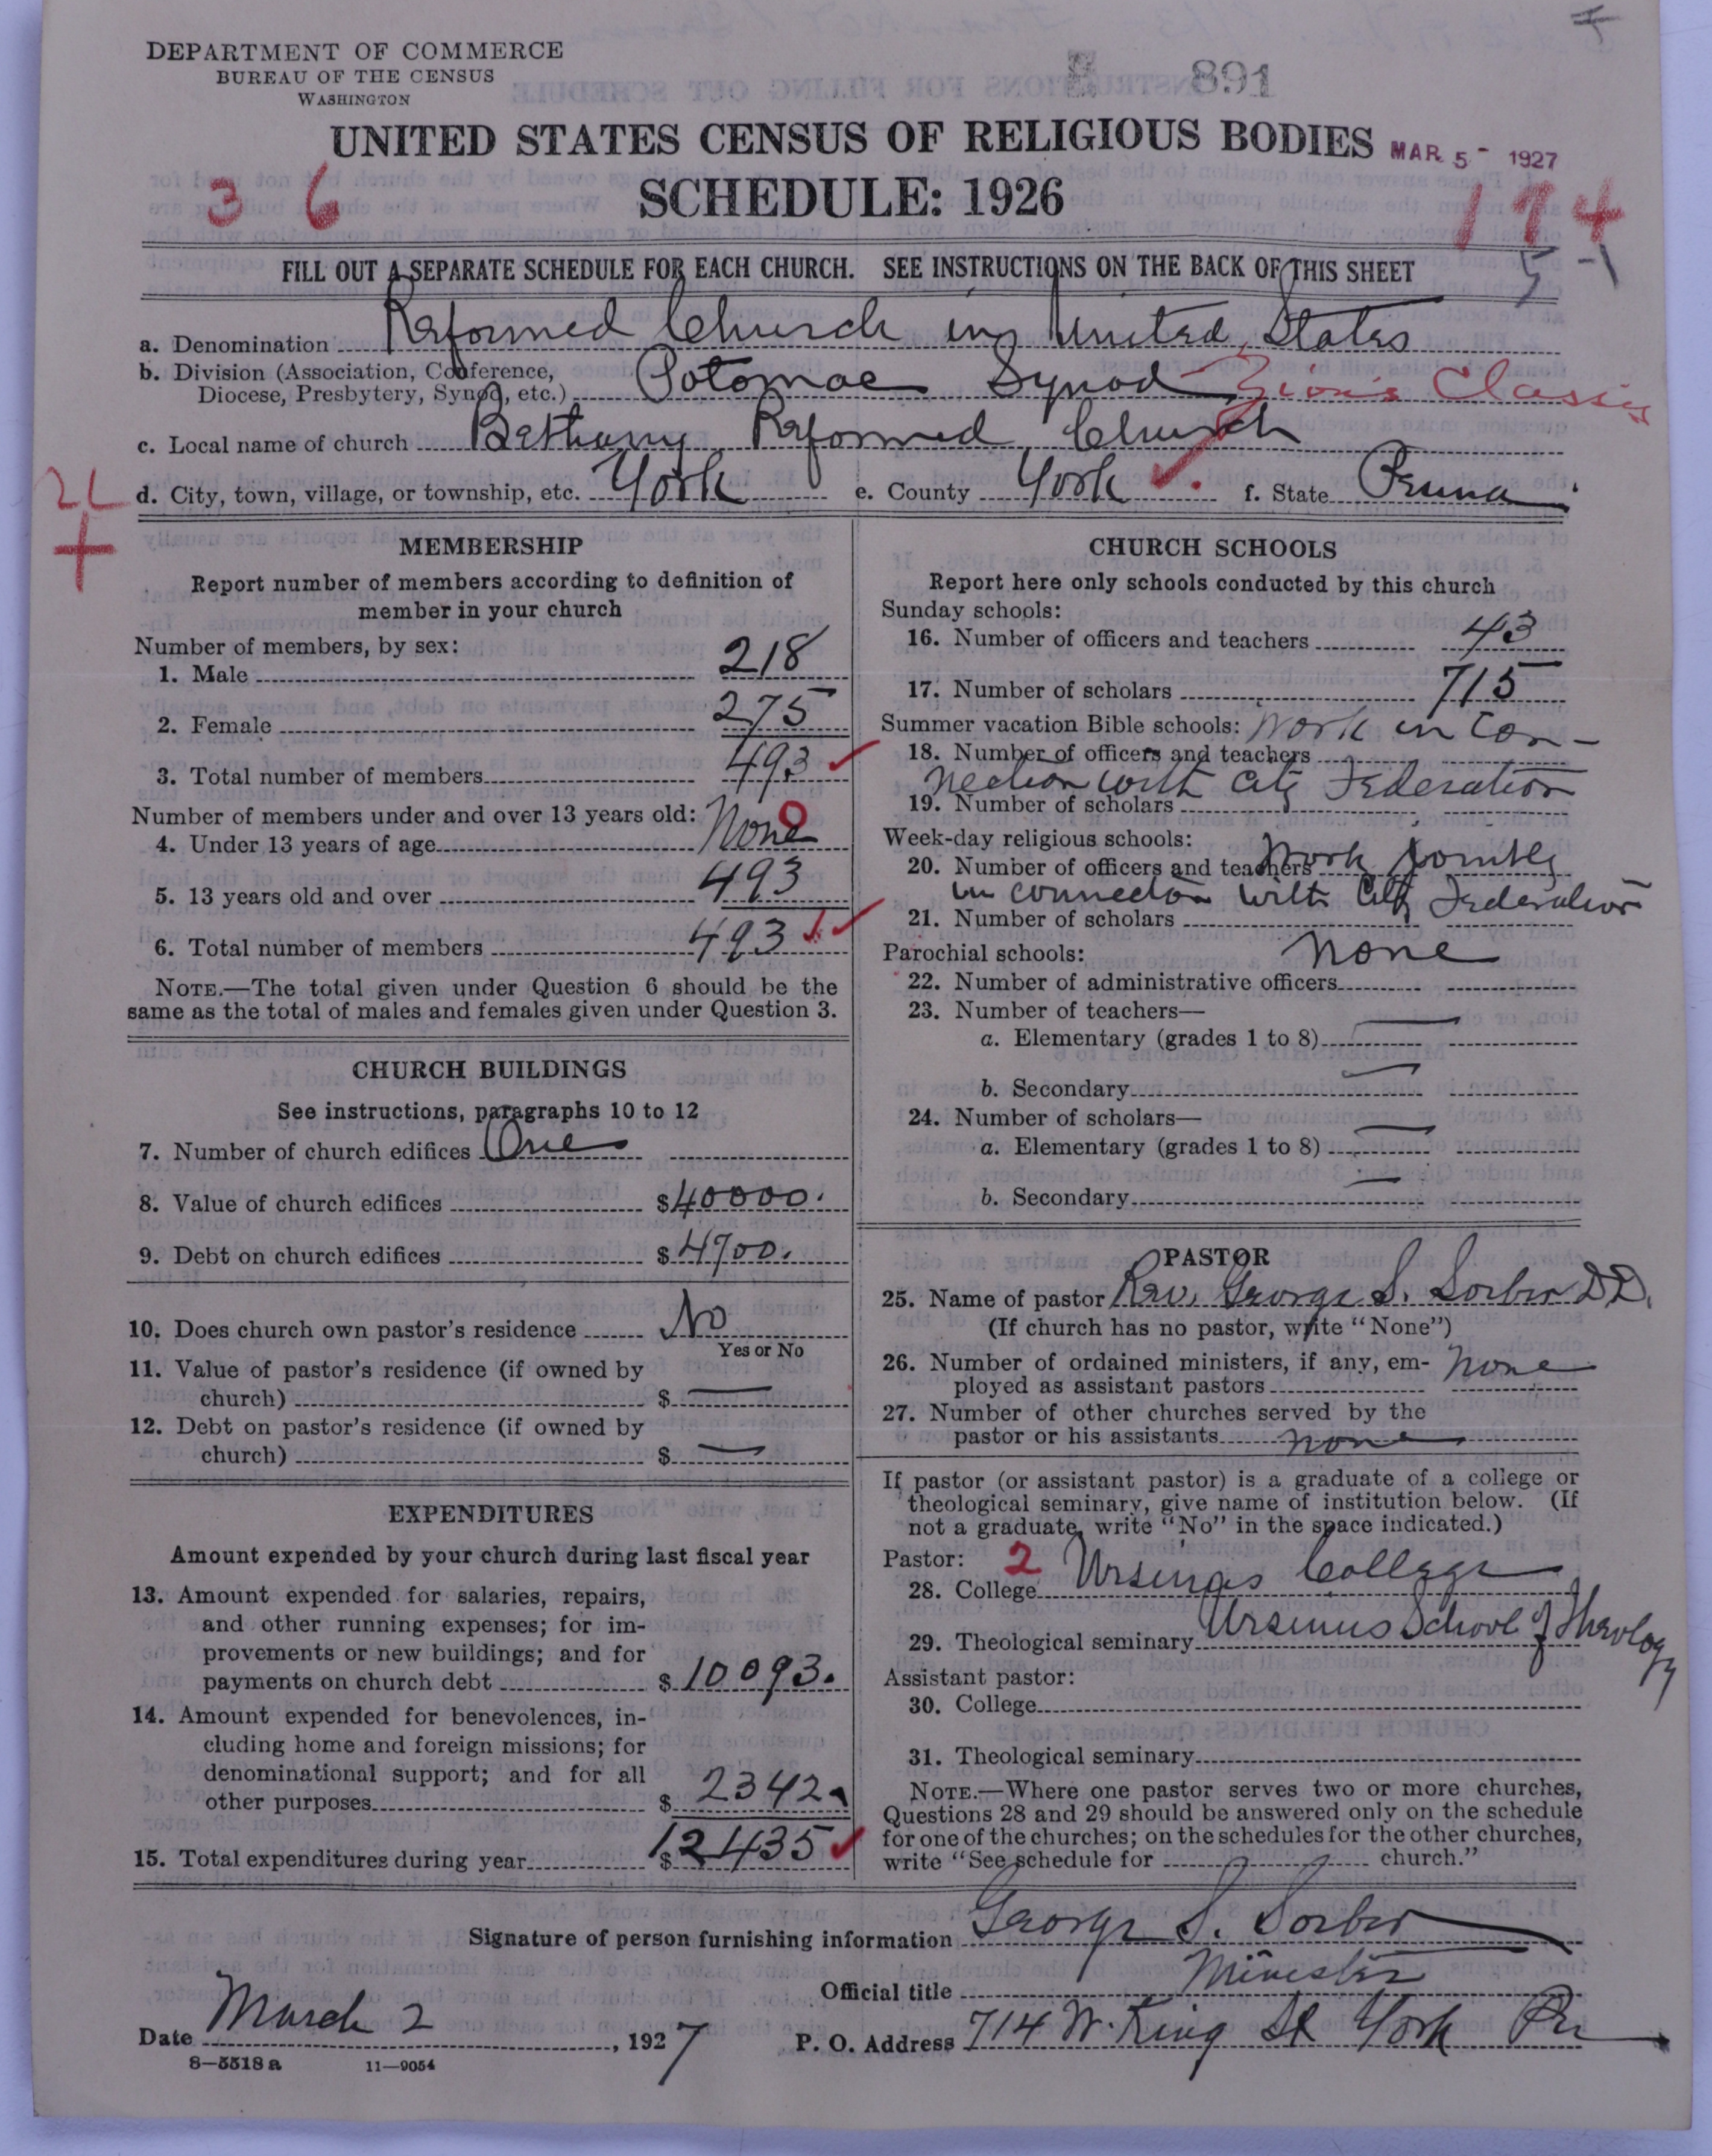 DEPARTMENT OF COMMERCE
BUREAU OF THE CENSUS
WASHINGTON
891
UNITED STATES CENSUS OF RELIGIOUS BODIES
MAR 5 - 1927
3 6
SCHEDULE: 1926
174
5-1
FILL OUT A SEPARATE SCHEDULE FOR EACH CHURCH. SEE INSTRUCTIONS ON THE BACK OF THIS SHEET
a. Denomination Reformed Church in United States
b. Division (Association, Conference, Diocese, Presbytery, Synod, etc.) Potomac Synod Zion's Classis
c. Local name of church Bethany Reformed Church
d. City, town, village, or township, etc. York e. County York f. State Penna
MEMBERSHIP
Report number of members according to definition of
member in your church
Number of members, by sex:
1. Male 218
2. Female 275
3. Total number of members 493
Number of members under and over 13 years old:
4. Under 13 years of age None 0
5. 13 years old and over 493
6. Total number of members 493
NOTE.—The total given under Question 6 should be the
same as the total of males and females given under Question 3.
CHURCH BUILDINGS
See instructions, paragraphs 10 to 12
7. Number of church edifices One
8. Value of church edifices $40000.
9. Debt on church edifices $4700.
10. Does church own pastor's residence No
Yes or No
11. Value of pastor's residence (if owned by
church) $ —
12. Debt on pastor's residence (if owned by
church) $ —
EXPENDITURES
Amount expended by your church during last fiscal year
13. Amount expended for salaries, repairs,
and other running expenses; for im-
provements or new buildings; and for
payments on church debt $10093.
14. Amount expended for benevolences, in-
cluding home and foreign missions; for
denominational support; and for all
other purposes $2342.
15. Total expenditures during year $12435
CHURCH SCHOOLS
Report here only schools conducted by this church
Sunday schools:
16. Number of officers and teachers 43
17. Number of scholars 715
Summer vacation Bible schools: Work in Con-
18. Number of officers and teachers
nection with City Federation
19. Number of scholars
Week-day religious schools:
20. Number of officers and teachers Work jointly
in connection with City Federation
21. Number of scholars
Parochial schools: None
22. Number of administrative officers
23. Number of teachers—
a. Elementary (grades 1 to 8) —
b. Secondary —
24. Number of scholars—
a. Elementary (grades 1 to 8) —
b. Secondary —
PASTOR
25. Name of pastor Rev. George S. Sorber D.D.
(If church has no pastor, write "None")
26. Number of ordained ministers, if any, em-
ployed as assistant pastors None
27. Number of other churches served by the
pastor or his assistants None
If pastor (or assistant pastor) is a graduate of a college or
theological seminary, give name of institution below. (If
not a graduate, write "No" in the space indicated.)
Pastor: 2
28. College Ursinus College
29. Theological seminary Ursinus School of Theology
Assistant pastor:
30. College
31. Theological seminary
NOTE.—Where one pastor serves two or more churches,
Questions 28 and 29 should be answered only on the schedule
for one of the churches; on the schedules for the other churches,
write "See schedule for church."
Signature of person furnishing information George S. Sorber
Official title Minister
Date March 2, 1927 P. O. Address 714 W. King St York Pa
8—5518 a 11—9054